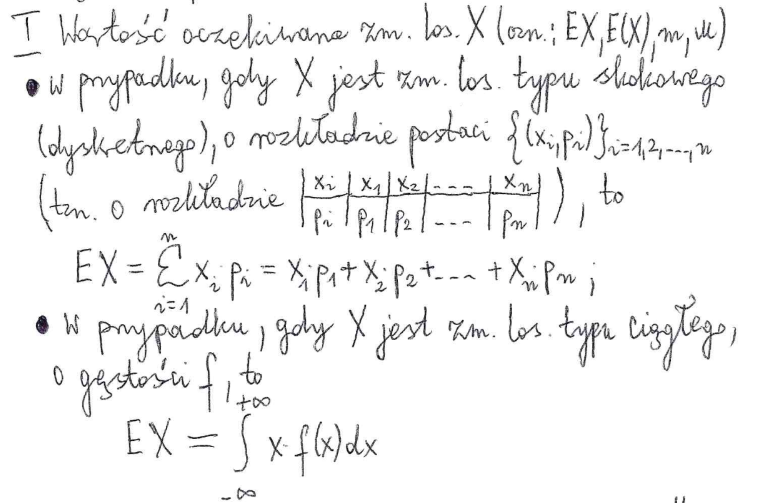 I Wartość oczekiwana zm. los. X (ozn.: EX, E(X), m, μ)
• w przypadku, gdy X jest zm. los. typu skokowego
(dyskretnego), o rozkładzie postaci {(xi, pi)}i=1,2,...,n
(tzn. o rozkładzie | xi | x1 | x2 | --- | xn |
| pi | p1 | p2 | --- | pn | ), to
EX = n∑i=1 xi pi = x1 p1 + x2 p2 + --- + xn pn ;
• w przypadku, gdy X jest zm. los. typu ciągłego,
o gęstości f, to
EX = +∞∫-∞ x·f(x)dx